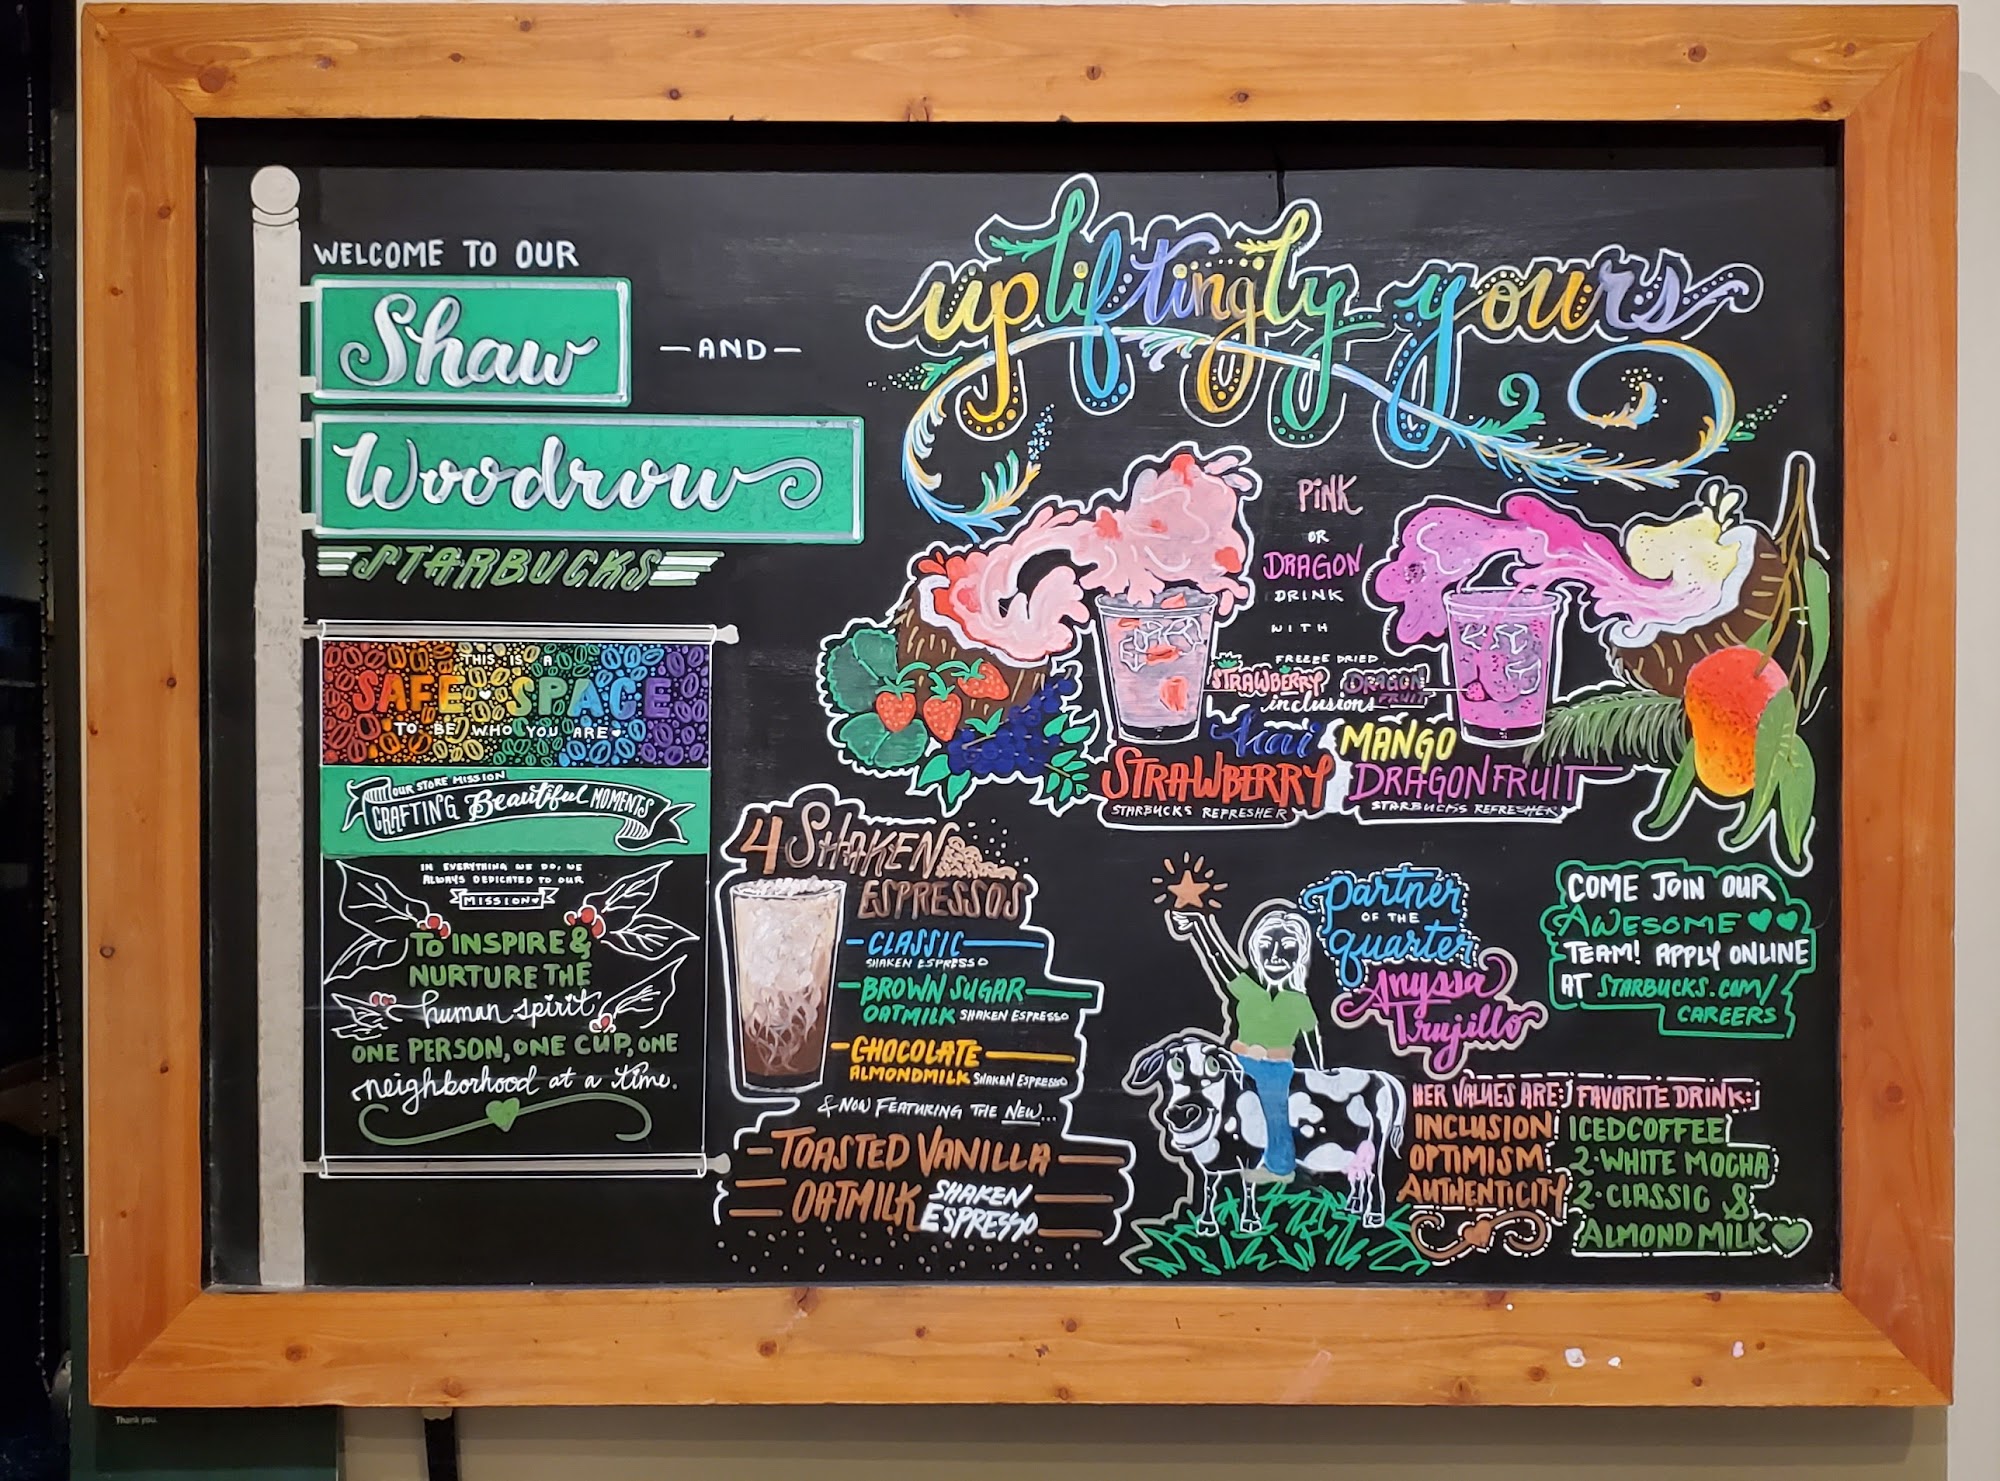 WELCOME TO OUR
Shaw
—AND—
Woodrow
STARBUCKS
THIS IS A
SAFE SPACE
TO BE WHO YOU ARE
OUR STORE MISSION
CRAFTING Beautiful MOMENTS
IN EVERYTHING WE DO, WE
ALWAYS DEDICATED TO OUR
MISSION
TO INSPIRE &
NURTURE THE
human spirit
ONE PERSON, ONE CUP, ONE
neighborhood at a time.
upliftingly yours
PINK
OR
DRAGON
DRINK
WITH
FREEZE DRIED
STRAWBERRY DRAGON
FRUIT
inclusions
Acai
STRAWBERRY
STARBUCKS REFRESHER
MANGO
DRAGONFRUIT
STARBUCKS REFRESHER
4 SHAKEN
ESPRESSOS
CLASSIC
SHAKEN ESPRESSO
BROWN SUGAR
OATMILK SHAKEN ESPRESSO
CHOCOLATE
ALMONDMILK SHAKEN ESPRESSO
& NOW FEATURING THE NEW...
TOASTED VANILLA
OATMILK SHAKEN
ESPRESSO
partner
OF THE
quarter
Anyssa
Trujillo
HER VALUES ARE:
INCLUSION
OPTIMISM
AUTHENTICITY
FAVORITE DRINK:
ICED COFFEE
2·WHITE MOCHA
2·CLASSIC &
ALMOND MILK
COME JOIN OUR
AWESOME
TEAM! APPLY ONLINE
AT STARBUCKS.COM/
CAREERS
Thank you.